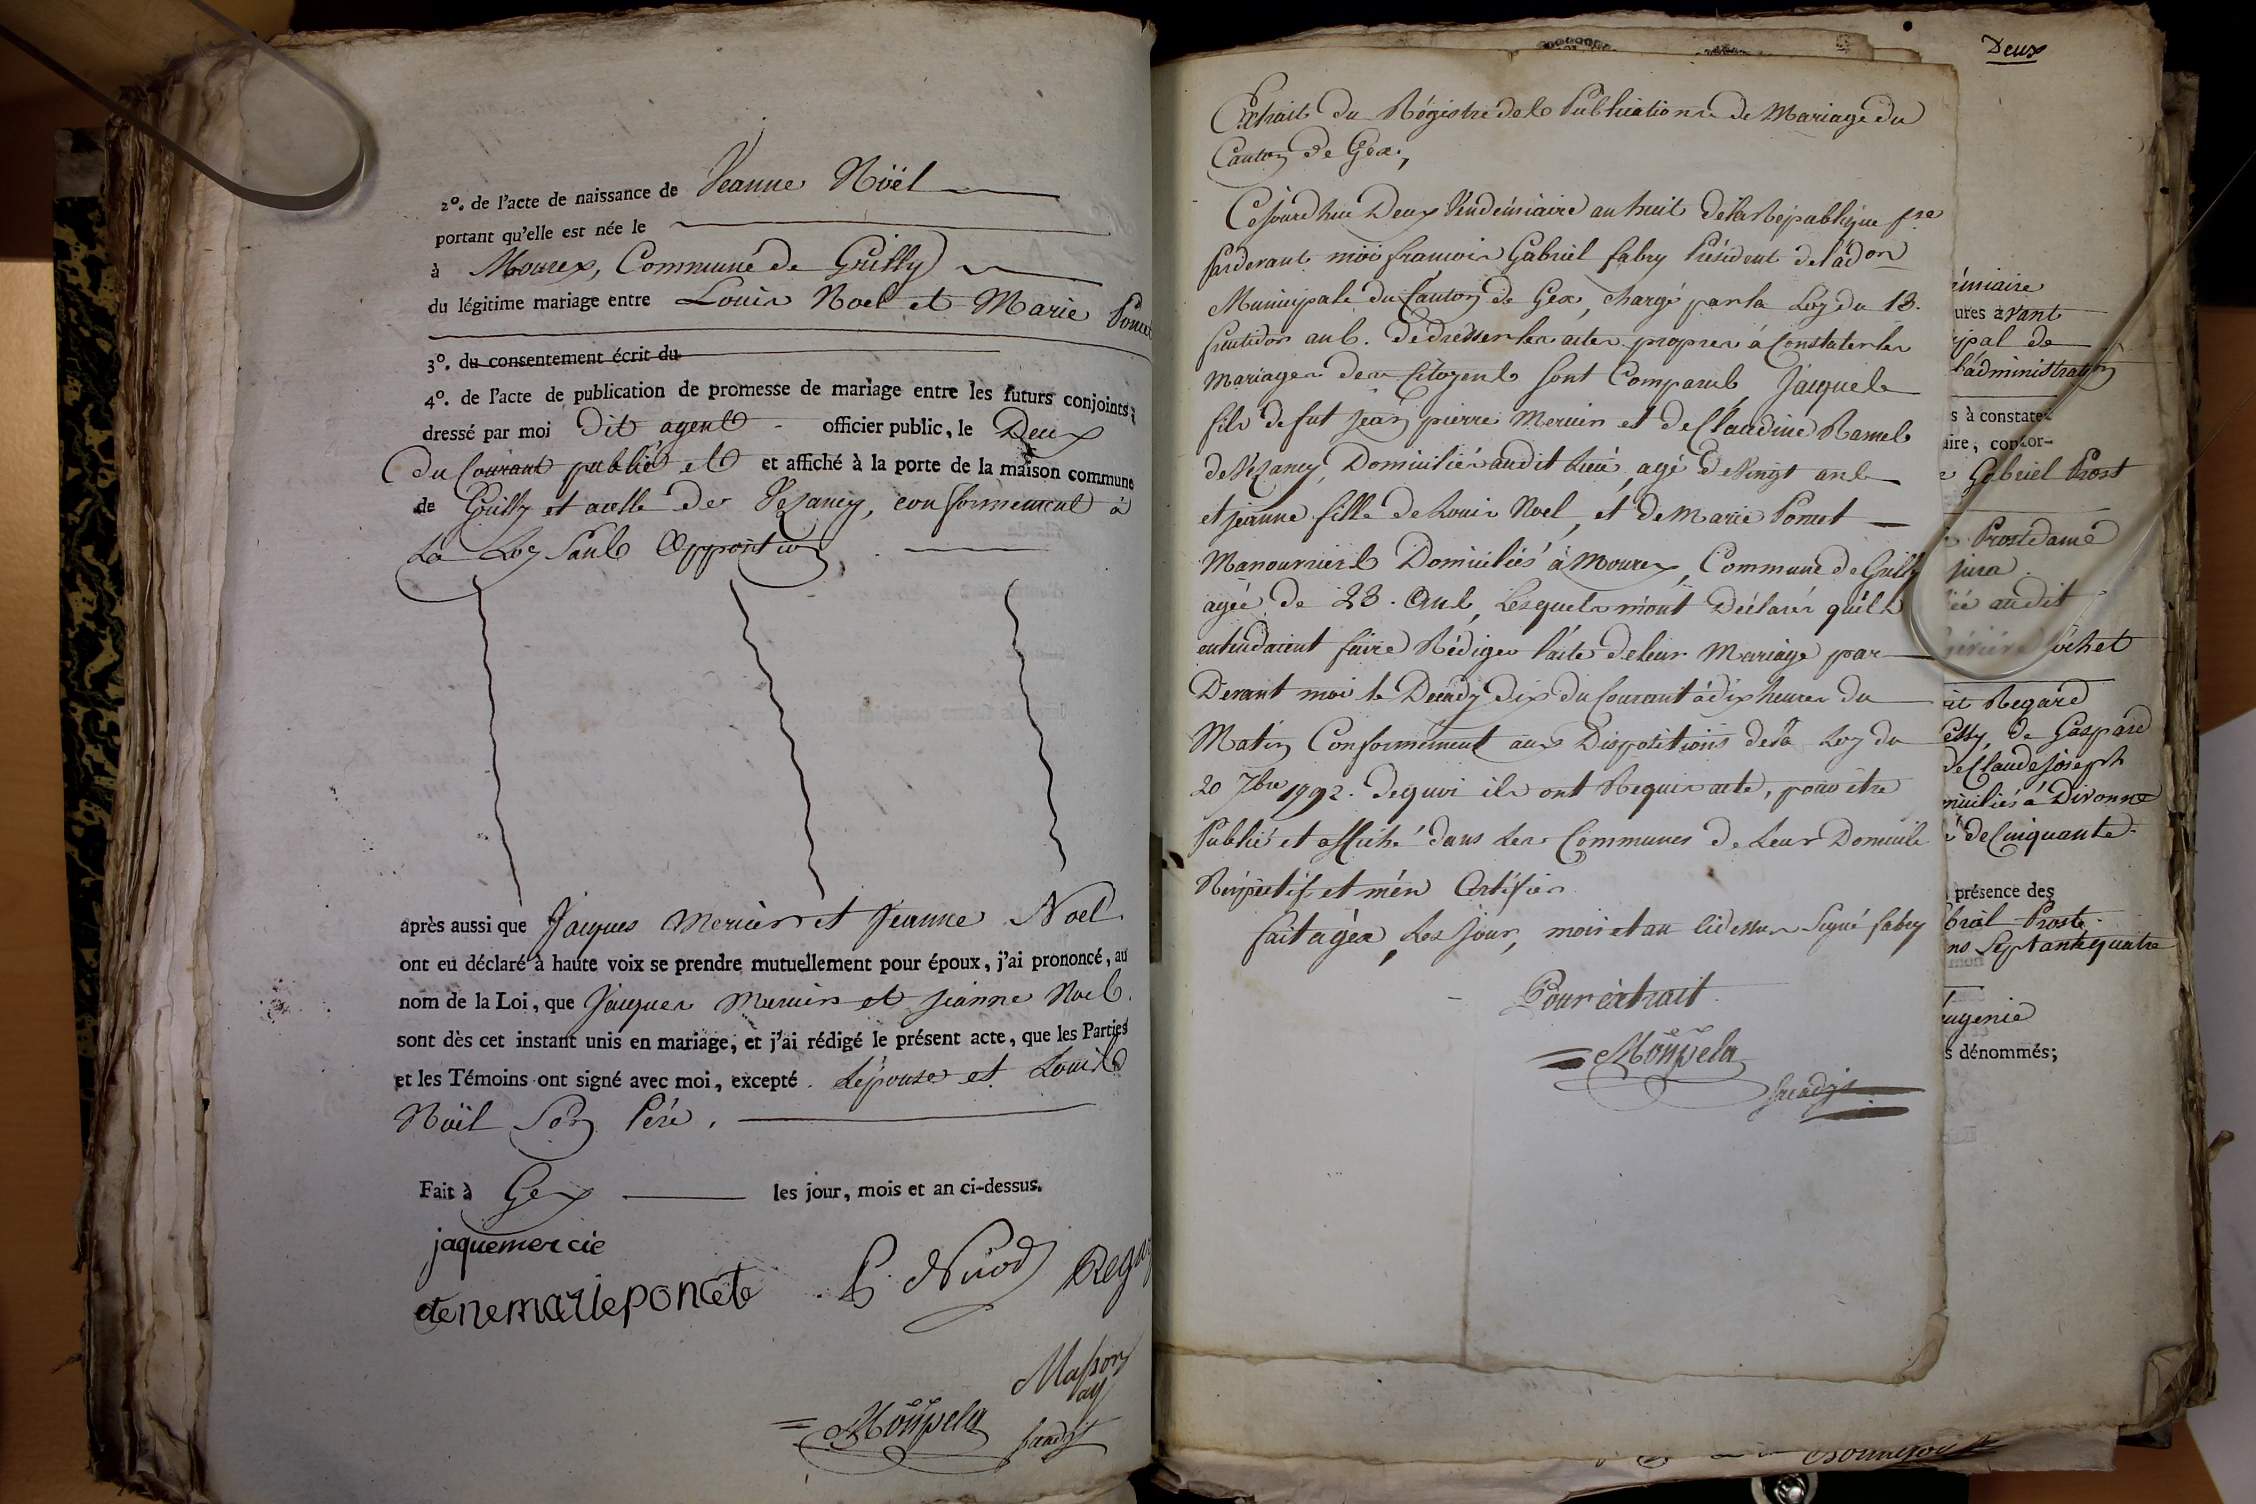 2º. de l'acte de naissance de Jeanne Nöel
portant qu'elle est née le
à Mourex, Commune de Grilly
du légitime mariage entre Louis Noel et Marie Poncet
3º. du consentement écrit du
4º. de l'acte de publication de promesse de mariage entre les futurs conjoints;
dressé par moi dit agent officier public, le Deux
Du Courant publié et et affiché à la porte de la maison commune
de Grilly et acelle de Vezancy, conformement à
La Loy Sans Opposition
après aussi que Jacques Mercier et Jeanne Noel
ont eu déclaré à haute voix se prendre mutuellement pour époux, j'ai prononcé, au
nom de la Loi, que Jacques Mercier et Jeanne Noel.
sont dès cet instant unis en mariage, et j'ai rédigé le présent acte, que les Parties
et les Témoins ont signé avec moi, excepté Lépouse et Louis
Noël Son Pére.
Fait à Gex les jour, mois et an ci-dessus.
jaquemercie
etenemarieponcet P. Nicod
Masson
ag
Moupela
Deux
Extrait du Régistre des Publications de Mariage du
Canton de Gex,
Cejourdhui Deux Vendémiaire an huit de la République fse
Pardevant moi francois Gabriel fabry Président de l'adon
Municipale du Canton de Gex, chargé par la Loy du 13.
fructidor an 6. de dresser les actes propres à Constater les
Mariages des Citoyens Sont Comparus Jacques
fils de fut Jean pierre Mercier et de Claudine Ramel
de Vezancy, Domicilié audit Lieu, agé de Vingt ans
et jeanne fille de Louis Noel, et de Marie Poncet
Manouvriers Domiciliés à Mourex, Commune de Grilly
agée de 23. ans, Lesquels m'ont Déclaré qu'ils
entendaient faire Rédiger l'acte de leur Mariage par
Devant moi le Decady dix du Courant à dix heures du
Matin Conformement aux Dispositions de la Loy du
20 7bre 1792. de quoi ils ont Requis acte, pour être
Publié et affiché dans Les Communes de Leur Domicile
Respectif et m'en Certifier
fait a gex, Les Jour, mois et an cidessus Signé fabry
Pour extrait
Moupela
émiaire
ures avant
ipal de
l'administration
s à constater
aire, confor-
Gabriel Prost
Proste ame
jura
ée audit
ochet
Regard
essy, de Gaspard
de Claude joseph
miciliés à Divonne
é de Cinquante
présence des
briel Proste
ns Septante quatre
eugenie
s dénommés;